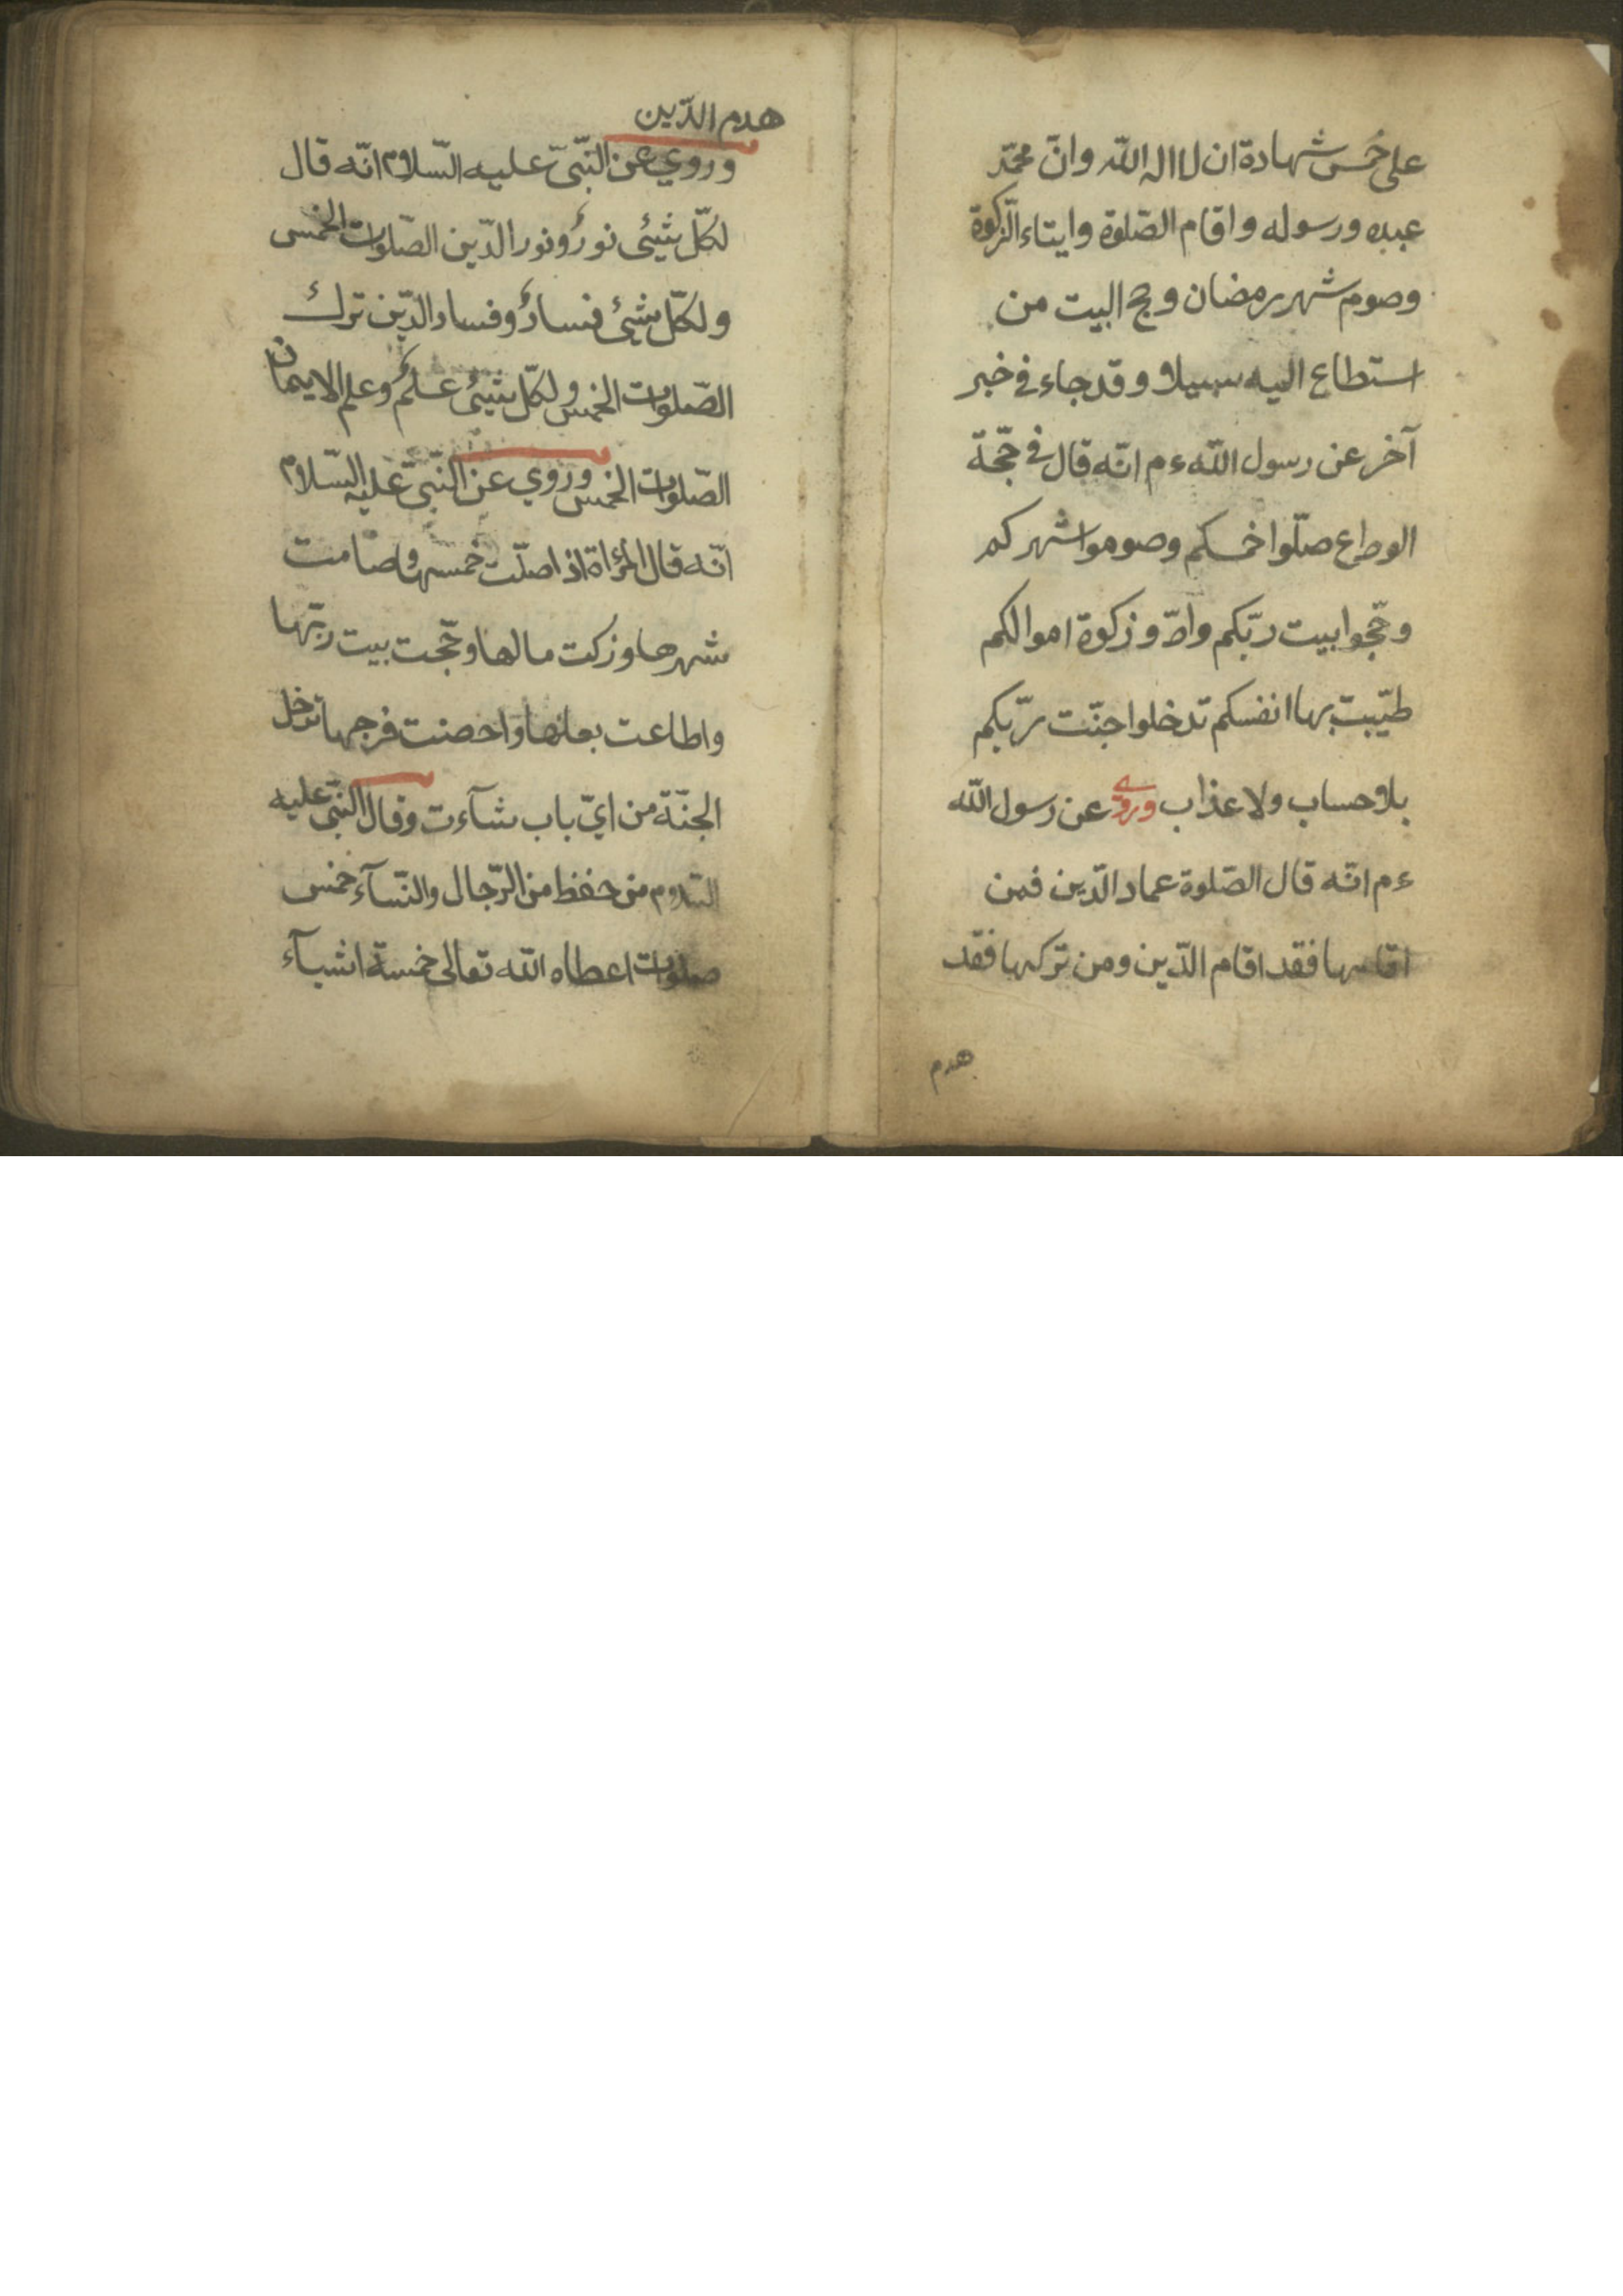 على خمس شهادة ان لا اله الا الله وانّ محمّد
عبده ورسوله واقام الصّلوة وايتاء الزّكوة
وصوم شهر رمضان وحج البيت من
استطاع اليه سبيلا وقد جاء في خبر
آخر عن رسول الله ءم انّه قال في حجّة
الوداع صلّوا خمسكم وصوموا شهركم
وحجّوا بيت ربّكم وادّو زكوة اموالكم
طيّبت بها انفسكم تدخلوا جنّت ربّكم
بلا حساب ولا عذاب وروي عن رسول الله
ءم انّه قال الصّلوة عماد الدّين فمن
اقامها فقد اقام الدّين ومن تركها فقد
هدم
هدم الدّين
وروي عن النّبيّ عليه السّلام انّه قال
لكلّ شيئ نورٌ ونور الدّين الصّلوات الخمس
ولكلّ شيئ فسادٌ وفساد الدّين ترك
الصّلوات الخمس ولكلّ شيئ علمٌ وعلم الايمان
الصّلوات الخمس وروي عن النّبيّ عليه السّلام
انّه قال المرؤاة اذا صلّت خمسها وصامت
شهرها وزكت مالها وحجّت بيت ربّها
واطاعت بعلها واحصنت فرجها تدخل
الجنّة من ايّ باب شآءت وقال النّبيّ عليه
السّلام من حفظ من الرّجال والنّسآء خمس
صلوات اعطاه الله تعالى خمسة اشيآء